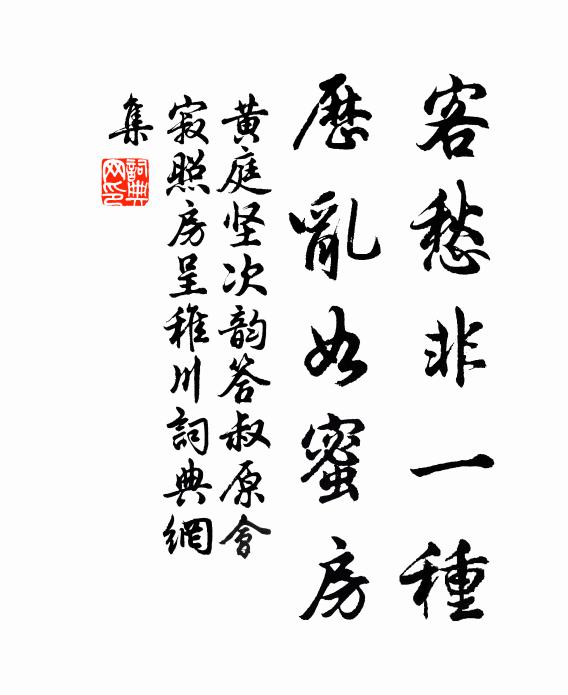 客愁非一種
歷亂如蜜房
黃庭坚次韵答叔原會
寂照房呈稚川詞典網
集
詞典網印